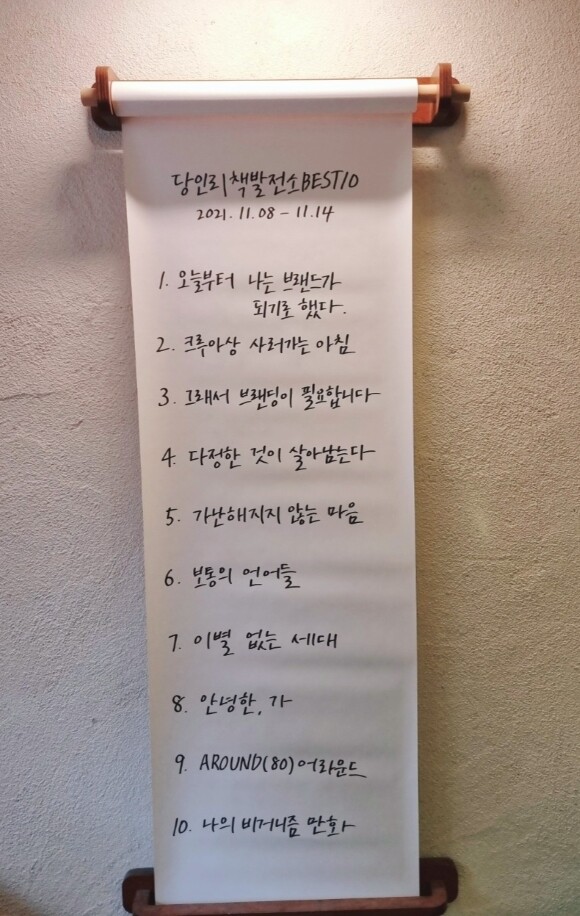 당인리책발전소BEST10
2021.11.08 - 11.14
1. 오늘부터 나는 브랜드가
되기로 했다.
2. 크루아상 사러가는 아침
3. 그래서 브랜딩이 필요합니다
4. 다정한 것이 살아남는다
5. 가난해지지 않는 마음
6. 보통의 언어들
7. 이별 없는 세대
8. 안녕한, 가
9. AROUND(80) 어라운드
10. 나의 비거니즘 만화